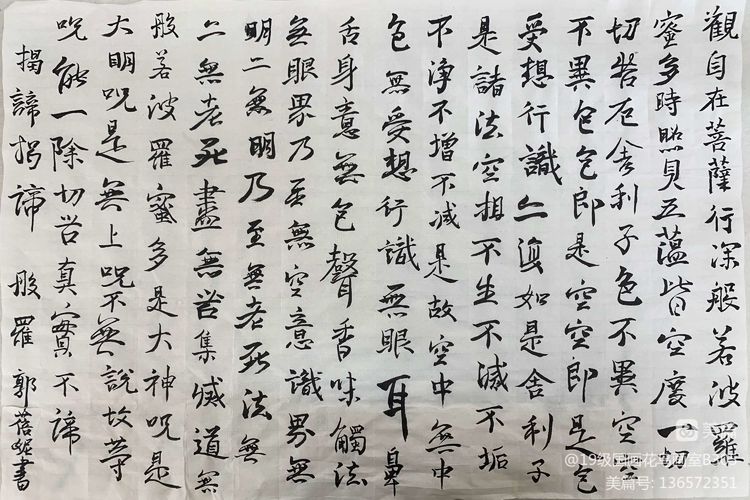 觀自在菩薩行深般若波羅
蜜多時照見五蘊皆空度一
切苦厄舍利子色不異空
不異色色即是空空即是色
受想行識亦復如是舍利子
是諸法空相不生不滅不垢
不淨不增不減是故空中無中
色無受想行識無眼耳鼻
舌身意無色聲香味觸法
無眼界乃至無空意識界無
明二無明乃至無老死法無
亦無老死盡無苦集滅道無
般若波羅蜜多是大神呪是
大明呪是無上呪不無說故等
呪能一除切苦真實不諦
揭諦揭諦 般羅 郭蓓妮書
美篇
@19级国画花鸟画室
美篇号: 136572351